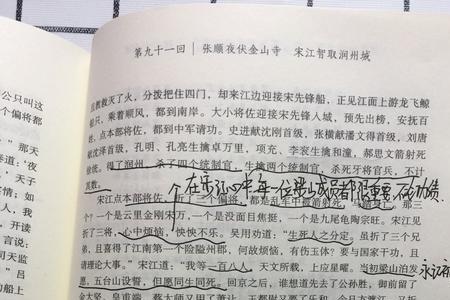 第九十一回 | 张顺夜伏金山寺 宋江智取润州城
且教救灭了火，分拨把住四门，却来江边迎接宋先锋船，正见江面上游龙飞鲸
船只，乘着顺风，都到南岸。大小将佐迎接宋先锋入城，预先出榜，安抚百
姓，点本部将佐，都到中军请功。史进献沈刚首级，张横献潘文得首级，刘唐
献沈泽首级，孔明、孔亮生擒卓万里，项充、李衮生擒和潼，郝思文箭射死
徐统。得了润州，杀了四个统制官，生擒两个统制官，杀死牙将官兵，不计
其数。
在宋江心中每一位梁山成员都很重要，不分功绩.
宋江点本部将佐，折了三个偏将，都是乱军中被箭射死，马踏身亡。那三
个？一个是云里金刚宋万，一个是没面目焦挺，一个是九尾龟陶宗旺。宋江见
折了三将，心中烦恼，怏怏不乐。吴用劝道：“生死人之分定。虽折了三个兄
弟，且喜得了江南第一个险隘州郡，何故烦恼，有伤玉体？要与国家干功，且
请理论大事。”宋江道：“我等一百八人，天文所载，上应星曜。当初梁山泊发
愿，五台山设誓，但愿同生同死。回京之后，谁想道先去了公孙胜，御前留了
金大坚、皇甫端，蔡太师又用了萧让，王都尉又要了乐和。今日方渡江
公只叫这
个偏将都
”那天